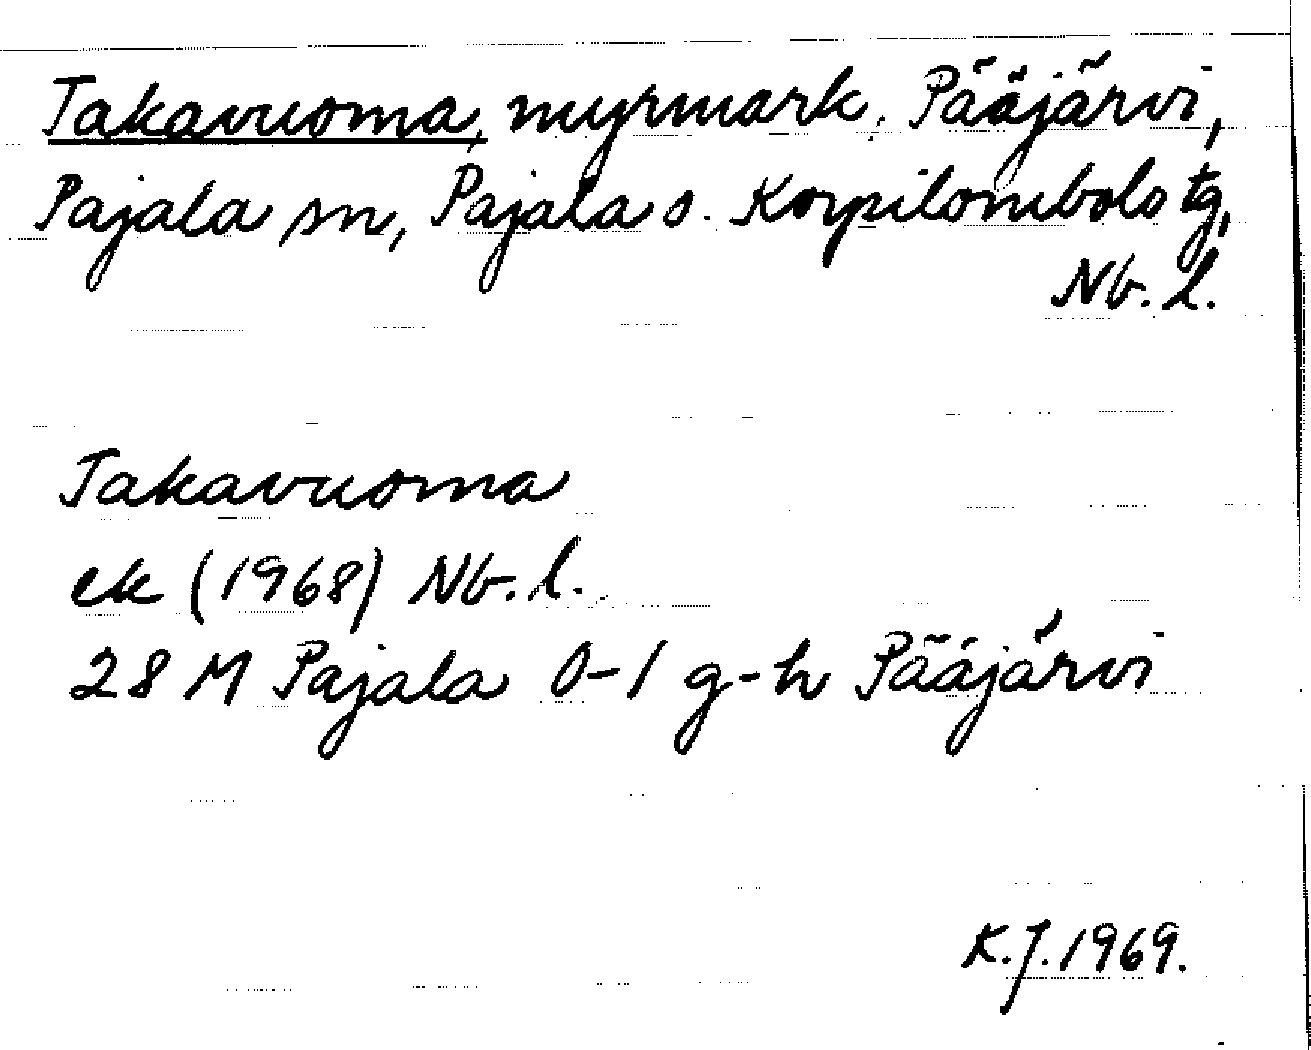 Takavuoma, myrmark. Pääjärvi,
Pajala sn, Pajala o. Korpilombolo tg,
Nb. l.
Takavuoma
ek (1968) Nb. l.
28 M Pajala 0-1 g-h Pääjärvi
K.J. 1969.